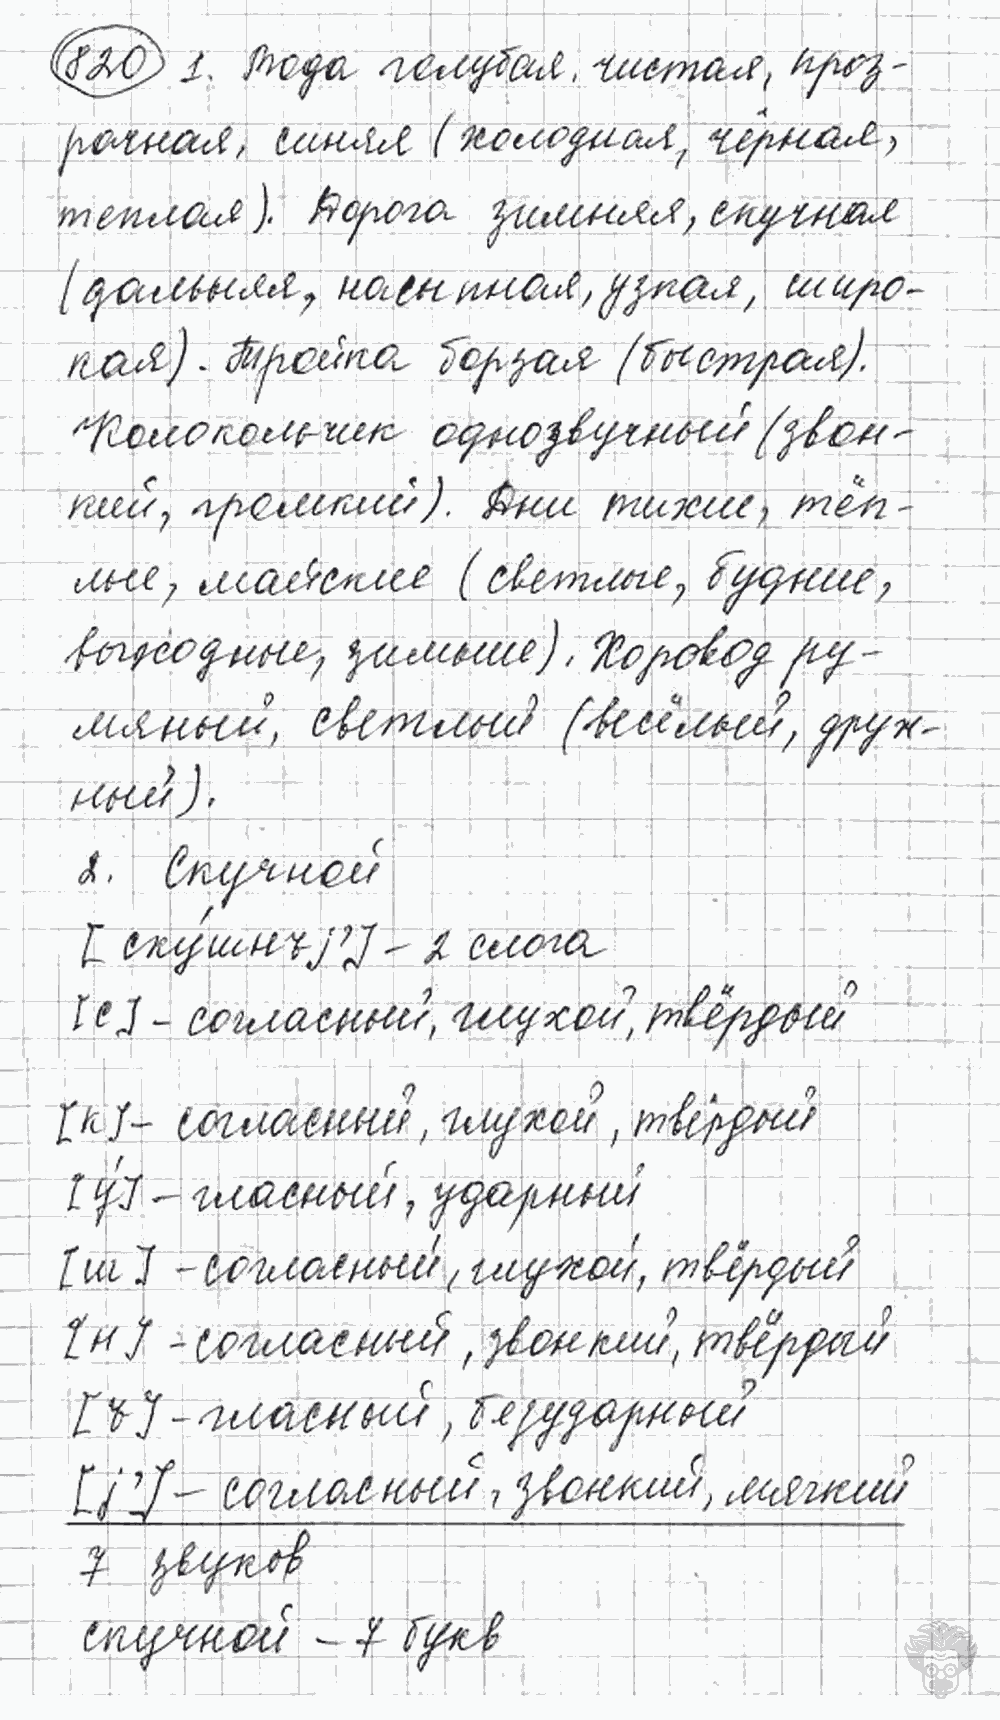 820 1. Вода голубая, чистая, проз-
рачная, синяя (холодная, чёрная,
теплая). Дорога зимняя, скучная
(дальняя, насыпная, узкая, широ-
кая). Тройка борзая (быстрая).
Колокольчик однозвучный (звон-
кий, громкий). Дни тихие, тёп-
лые, майские (светлые, будние,
выходные, зимние). Хоровод ру-
мяный, светлый (весёлый, друж-
ный).
2. Скучной
[ску́шнъj'] – 2 слога
[с] – согласный, глухой, твёрдый
[к] – согласный, глухой, твёрдый
[у́] – гласный, ударный
[ш] – согласный, глухой, твёрдый
[н] – согласный, звонкий, твёрдый
[ъ] – гласный, безударный
[j'] – согласный, звонкий, мягкий
7 звуков
скучной – 7 букв